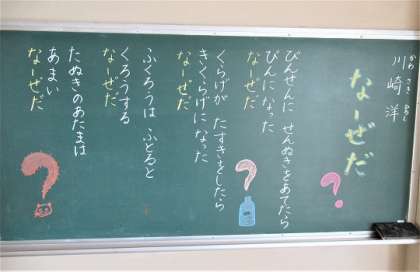 かわ さき ひろし
川崎 洋
なーぜだ
?
びんせんに せんぬきをあてたら
びんになった
なーぜだ
?
くらげが たすきをしたら
きくらげになった
なーぜだ
ふくろうは ふとると
くろうする
なーぜだ
たぬきのあたまは
あまい
なーぜだ
?